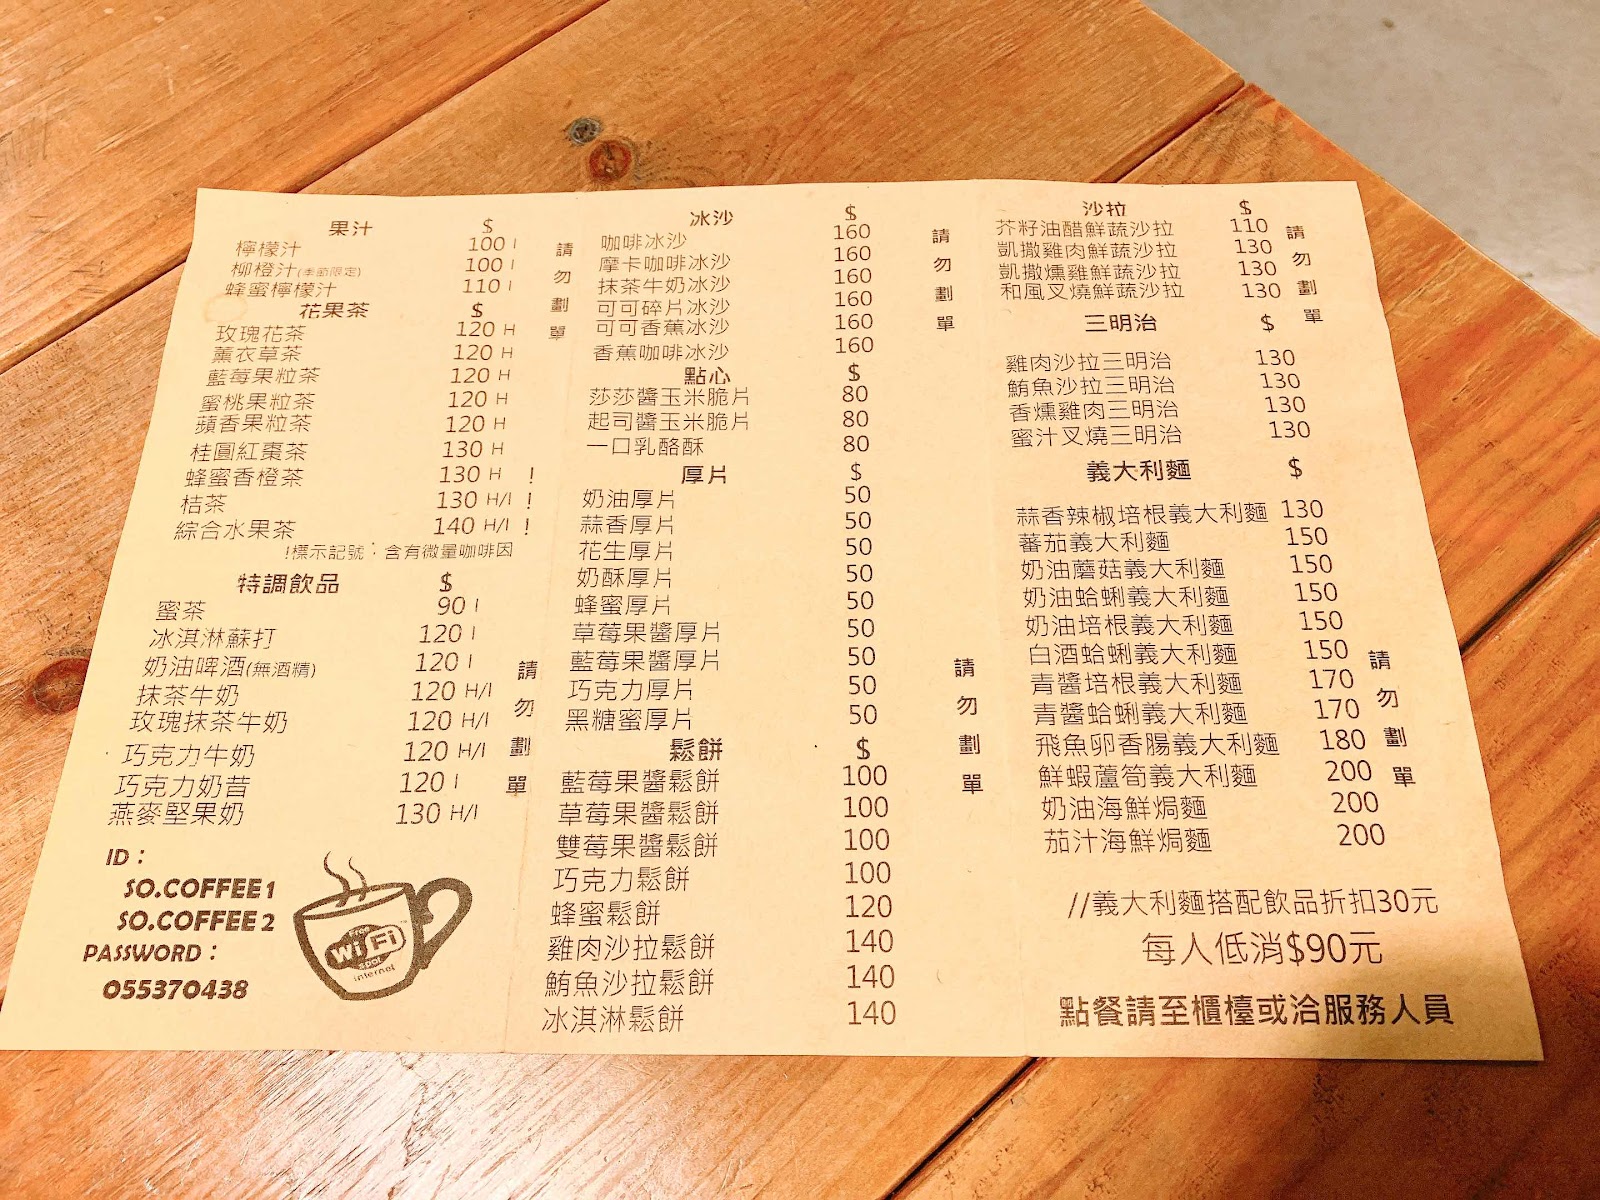 果汁 $
檸檬汁 100 I
柳橙汁(季節限定) 100 I
蜂蜜檸檬汁 110 I
花果茶 $
玫瑰花茶 120 H
薰衣草茶 120 H
藍莓果粒茶 120 H
蜜桃果粒茶 120 H
蘋香果粒茶 120 H
桂圓紅棗茶 130 H
蜂蜜香橙茶 130 H !
桔茶 130 H/I !
綜合水果茶 140 H/I !
!標示記號：含有微量咖啡因
特調飲品 $
蜜茶 90 I
冰淇淋蘇打 120 I
奶油啤酒(無酒精) 120 I
抹茶牛奶 120 H/I
玫瑰抹茶牛奶 120 H/I
巧克力牛奶 120 H/I
巧克力奶昔 120 I
燕麥堅果奶 130 H/I
請勿劃單
請勿劃單
ID：
SO.COFFEE1
SO.COFFEE2
PASSWORD：
055370438
Wi Fi
spot
internet
冰沙 $
咖啡冰沙 160
摩卡咖啡冰沙 160
抹茶牛奶冰沙 160
可可碎片冰沙 160
可可香蕉冰沙 160
香蕉咖啡冰沙 160
點心 $
莎莎醬玉米脆片 80
起司醬玉米脆片 80
一口乳酪酥 80
厚片 $
奶油厚片 50
蒜香厚片 50
花生厚片 50
奶酥厚片 50
蜂蜜厚片 50
草莓果醬厚片 50
藍莓果醬厚片 50
巧克力厚片 50
黑糖蜜厚片 50
鬆餅 $
藍莓果醬鬆餅 100
草莓果醬鬆餅 100
雙莓果醬鬆餅 100
巧克力鬆餅 100
蜂蜜鬆餅 120
雞肉沙拉鬆餅 140
鮪魚沙拉鬆餅 140
冰淇淋鬆餅 140
請勿劃單
請勿劃單
沙拉 $
芥籽油醋鮮蔬沙拉 110
凱撒雞肉鮮蔬沙拉 130
凱撒燻雞鮮蔬沙拉 130
和風叉燒鮮蔬沙拉 130
三明治 $
雞肉沙拉三明治 130
鮪魚沙拉三明治 130
香燻雞肉三明治 130
蜜汁叉燒三明治 130
義大利麵 $
蒜香辣椒培根義大利麵 130
蕃茄義大利麵 150
奶油蘑菇義大利麵 150
奶油蛤蜊義大利麵 150
奶油培根義大利麵 150
白酒蛤蜊義大利麵 150
青醬培根義大利麵 170
青醬蛤蜊義大利麵 170
飛魚卵香腸義大利麵 180
鮮蝦蘆筍義大利麵 200
奶油海鮮焗麵 200
茄汁海鮮焗麵 200
請勿劃單
請勿劃單
//義大利麵搭配飲品折扣30元
每人低消$90元
點餐請至櫃檯或洽服務人員